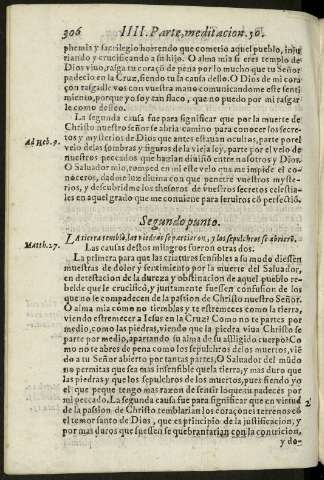 306 IIII. Parte, meditacion. 50.
phemia y sacrilegio horrendo que cometio aquel pueblo, inju
riando y crucificando a su hijo. O alma mia si eres templo de
Dios viuo, rasga tu coraçõ de pena por lo mucho que tu Señor
padecio en la Cruz, siendo tu la causa dello. O Dios de mi cora
çon rasgadle vos con vuestra mano comunicandome este senti
miento, porque yo soy tan flaco, que no puedo por mi rasgar
le como desseo.
La segunda causa fue para significar que por la muerte de
Christo nuestro señor se abria camino para conocer los secre-
tos y mysterios de Dios que antes estauan ocultos, parte por el
Ad Heb. 9.
velo de las sombras y figuras de la vieja ley, parte por el velo de
nuestros peccados que hazian diuisiõ entre nosotros y Dios.
O Saluador mio, romped en mi este velo que me impide el co-
noceros, dadme luz diuina con que penetre vuestros myste-
rios, y descubridme los thesoros de vuestros secretos celestia-
les en aquel grado que me conuiene para seruiros cõ perfectiõ.
Segundo punto.
LA tierra temblò, las piedras se partieron, y los sepulchros se abrierõ.
Matth. 27.
Las causas destos milagros fueron otras dos.
La primera para que las criaturas sensibles a su modo diessen
muestras de dolor y sentimiento por la muerte del Saluador,
en detestacion de la dureza y obstinacion de aquel pueblo re-
belde que le crucificò, y juntamente fuessen confusion de los
que no se compadecen de la passion de Christo nuestro Señor.
O alma mia como no tiemblas y te estremeces como la tierra,
viendo estremecer a Iesus en la Cruz? Como no te partes por
medio, como las piedras, viendo que la piedra viua Christo se
parte por medio, apartando su alma de su affligido cuerpo? Co
mo no te abres de pena como los sepulchros de los muertos, viẽ
do a tu Señor abierto por tantas partes. O Saluador del mũdo
no permitas que sea mas insensible que la tierra, y mas duro que
las piedras y que los sepulchros de los muertos, pues siendo yo
el que peque tengo mas razon de sentir lo que tu padeces por
mi peccado. La segunda causa fue para significar que en virtud
de la passion de Christo temblarian los coraçones terrenos cõ
el temor santo de Dios, que es principio de la justificacion, y
por mas duros que fuessen se quebrantarian con la contricion,
y do-